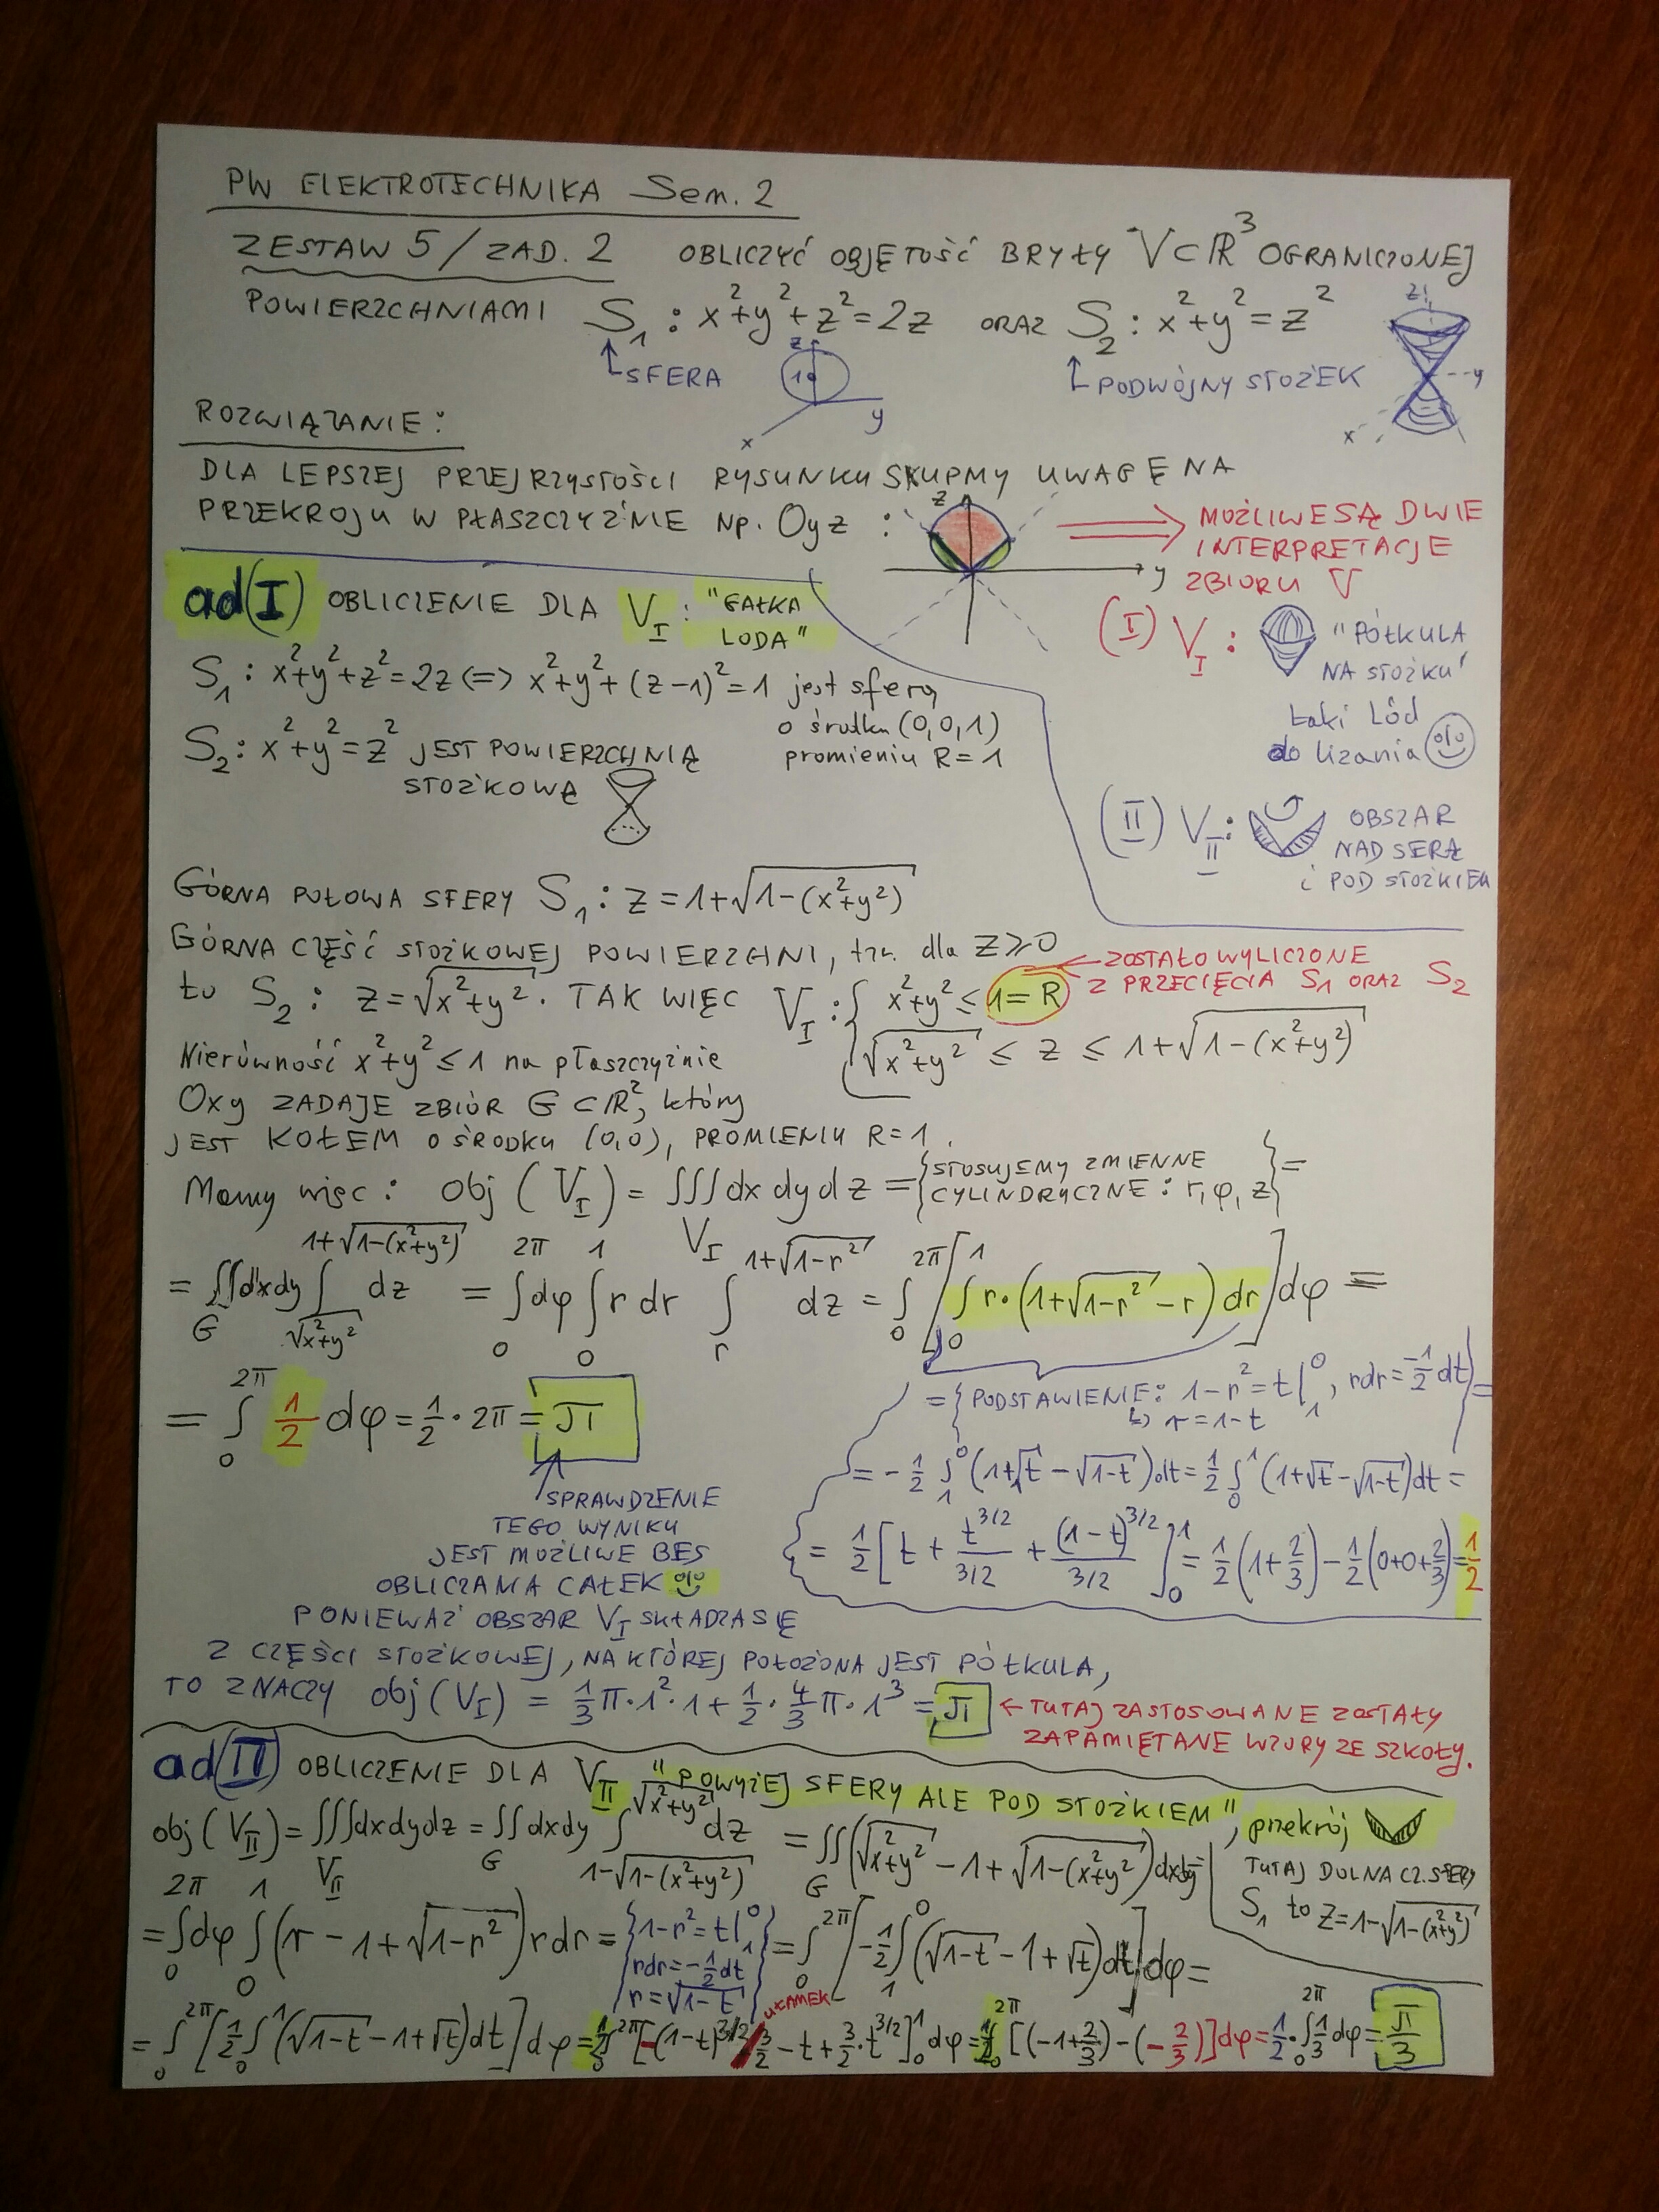 PW ELEKTROTECHNIKA Sem. 2
ZESTAW 5 / ZAD. 2 OBLICZYĆ OBJĘTOŚĆ BRYŁY V⊂ℝ³ OGRANICZONEJ
POWIERZCHNIAMI S₁ : x²+y²+z²=2z ORAZ S₂ : x²+y²=z²
↑SFERA ↑PODWÓJNY STOŻEK
z 1 y x
z y x
ROZWIĄZANIE :
DLA LEPSZEJ PRZEJRZYSTOŚCI RYSUNKU SKUPMY UWAGĘ NA
PRZEKROJU W PŁASZCZYŹNIE NP. Oyz :
z y
⇒ MOŻLIWE SĄ DWIE
INTERPRETACJE
ZBIORU V
(I) V_I : "PÓŁKULA
NA STOŻKU"
taki Lód
do lizania
(II) V_II : OBSZAR
NAD SERĄ
i POD STOŻKIEM
ad(I) OBLICZENIE DLA V_I : "GAŁKA
LODA"
S₁ : x²+y²+z²=2z <=> x²+y²+(z-1)²=1 jest sferą
o środku (0,0,1)
promieniu R=1
S₂ : x²+y²=z² JEST POWIERZCHNIĄ
STOŻKOWĄ
GÓRNA POŁOWA SFERY S₁ : z=1+√(1-(x²+y²))
GÓRNA CZĘŚĆ STOŻKOWEJ POWIERZCHNI, tzn. dla z≥0
to S₂ : z=√(x²+y²). TAK WIĘC V_I : { x²+y² ≤ 1=R
← ZOSTAŁO WYLICZONE
Z PRZECIĘCIA S₁ ORAZ S₂
√(x²+y²) ≤ z ≤ 1+√(1-(x²+y²))
Nierówność x²+y²≤1 na płaszczyźnie
Oxy ZADAJE ZBIÓR G⊂ℝ², który
JEST KOŁEM O ŚRODKU (0,0), PROMIENIU R=1.
Mamy więc : Obj (V_I) = ∭_{V_I} dx dy dz = {STOSUJEMY ZMIENNE
CYLINDRYCZNE : r, φ, z} =
= ∬_G dxdy ∫_{√(x²+y²)}^{1+√(1-(x²+y²))} dz = ∫_0^{2π} dφ ∫_0^1 r dr ∫_r^{1+√(1-r²)} dz = ∫_0^{2π} [∫_0^1 r·(1+√(1-r²) -r) dr] dφ =
= ∫_0^{2π} 1/2 dφ = 1/2 · 2π = π
= {PODSTAWIENIE: 1-r²=t|_1^0, rdr=-1/2 dt} =
↳ r=1-t
= -1/2 ∫_1^0 (1+√t - √(1-t)) dt = 1/2 ∫_0^1 (1+√t-√(1-t)) dt =
= 1/2 [t + t^{3/2}/(3/2) + (1-t)^{3/2}/(3/2)]_0^1 = 1/2 (1+2/3) - 1/2 (0+0+2/3) = 1/2
SPRAWDZENIE
TEGO WYNIKU
JEST MOŻLIWE BES
OBLICZANIA CAŁEK
PONIEWAŻ OBSZAR V_I SKŁADZA SIĘ
Z CZĘŚCI STOŻKOWEJ, NA KTÓREJ POŁOŻONA JEST PÓŁKULA,
TO ZNACZY obj (V_I) = 1/3 π·1²·1 + 1/2 · 4/3 π·1³ = π ← TUTAJ ZASTOSOWANE ZOSTAŁY
ZAPAMIĘTANE WZORY ZE SZKOŁY.
ad(II) OBLICZENIE DLA V_II "POWYŻEJ SFERY ALE POD STOŻKIEM", przekrój
obj (V_II) = ∭_{V_II} dxdydz = ∬_G dxdy ∫_{1-√(1-(x²+y²))}^{√(x²+y²)} dz = ∬_G (√(x²+y²) -1+√(1-(x²+y²))) dxdy =
TUTAJ DOLNA CZ. SFERY
S₁ to z=1-√(1-(x²+y²))
= ∫_0^{2π} dφ ∫_0^1 (r-1+√(1-r²)) r dr = {1-r²=t|_1^0
rdr=-1/2 dt
r=√(1-t)} = ∫_0^{2π} [-1/2 ∫_1^0 (√(1-t) -1+√t) dt] dφ =
UŁAMEK
= ∫_0^{2π} [1/2 ∫_0^1 (√(1-t) -1+√t) dt] dφ = 1/2 ∫_0^{2π} [-(1-t)^{3/2} / 3/2 - t + 3/2 · t^{3/2}]_0^1 dφ = 1/2 ∫_0^{2π} [(-1+2/3)-(-2/3)] dφ = 1/2 · ∫_0^{2π} 1/3 dφ = π/3